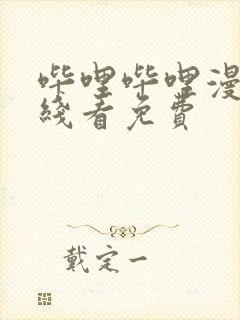 哔哩哔哩漫
线看免费
戴定一